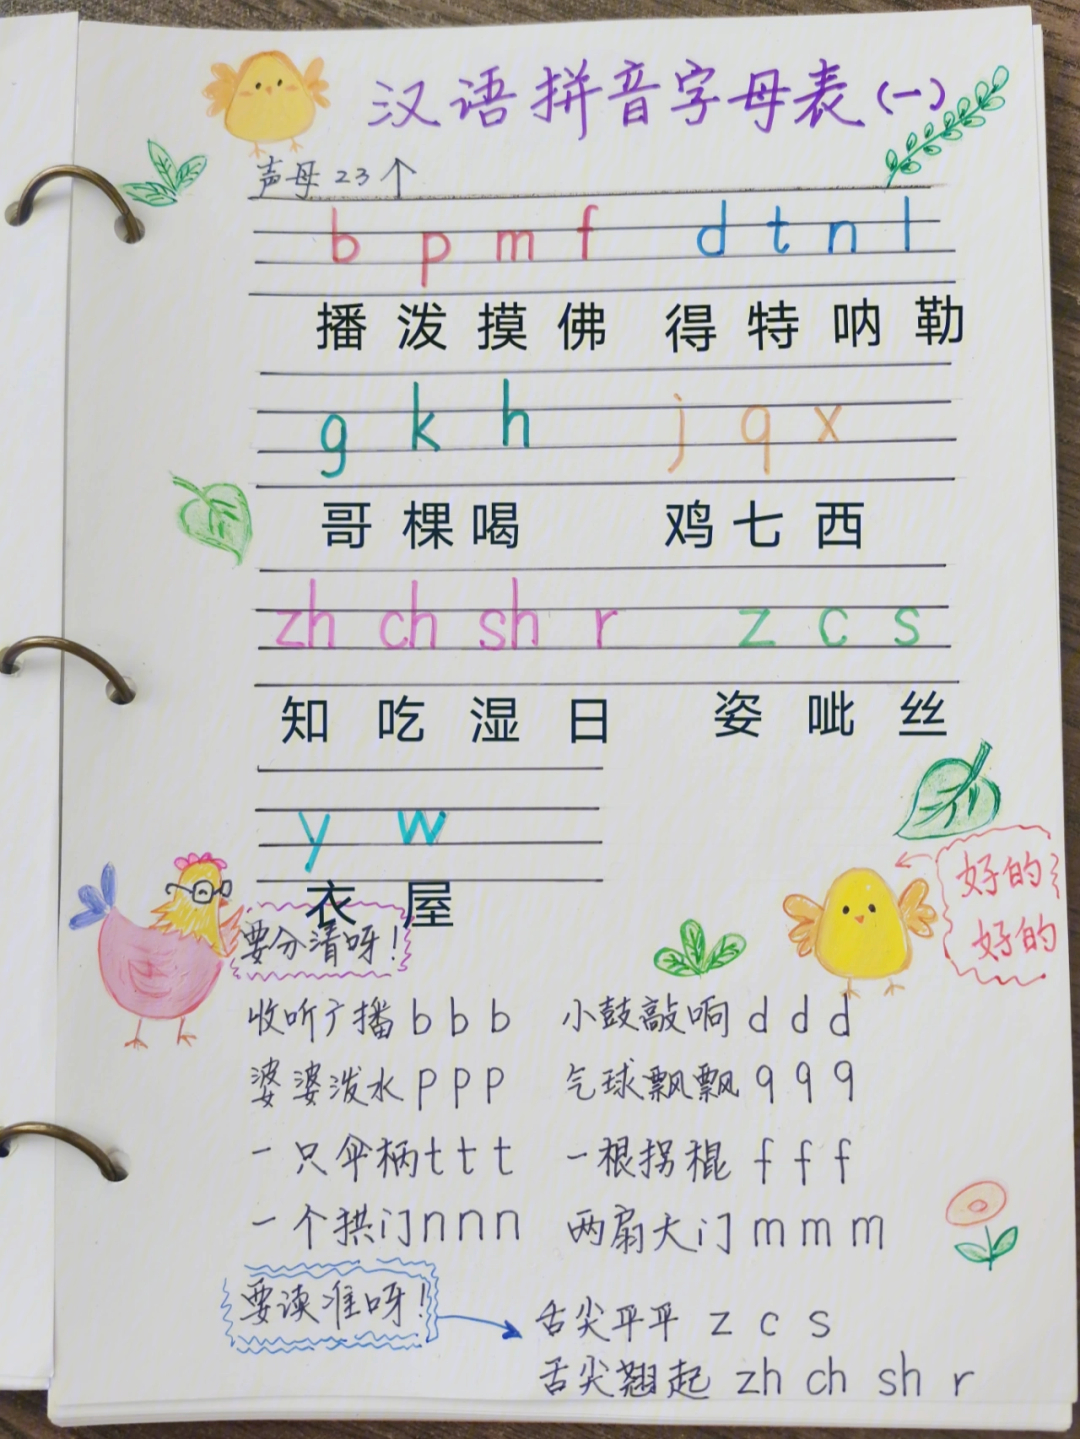 汉语拼音字母表(一)
声母23个
b p m f d t n l
播 泼 摸 佛 得 特 呐 勒
g k h j q x
哥 棵 喝 鸡 七 西
zh ch sh r z c s
知 吃 湿 日 姿 呲 丝
y w
衣 屋
好的
好的
要分清呀！
收听广播 b b b 小鼓敲响 d d d
婆婆泼水 p p p 气球飘飘 q q q
一只伞柄 t t t 一根拐棍 f f f
一个拱门 n n n 两扇大门 m m m
要读准呀！
舌尖平平 z c s
舌尖翘起 zh ch sh r